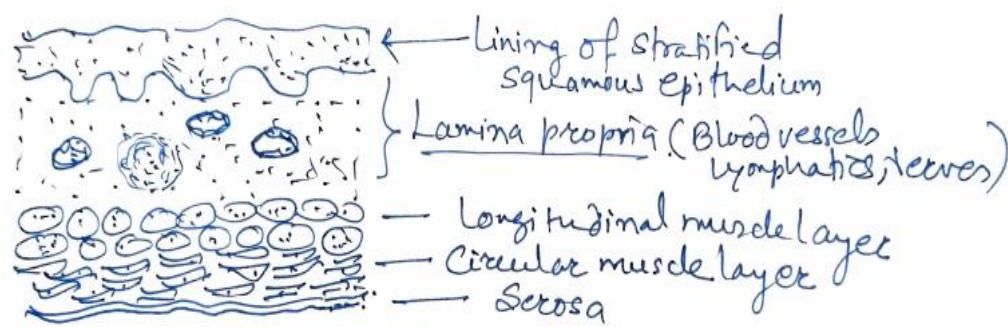 Lining of stratified
squamous epithelium
Lamina propria (Blood vessels
lymphatics, nerves)
Longitudinal muscle layer
Circular muscle layer
Serosa